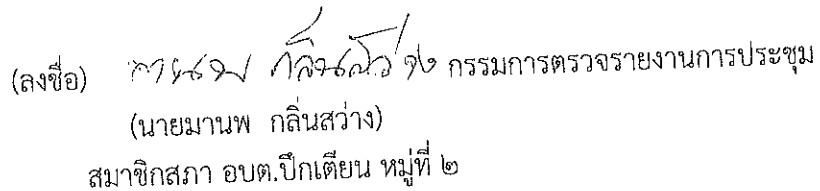 (ลงชื่อ) มานพ กลิ่นสว่าง กรรมการตรวจรายงานการประชุม
(นายมานพ กลิ่นสว่าง)
สมาชิกสภา อบต.ปึกเตียน หมู่ที่ ๒